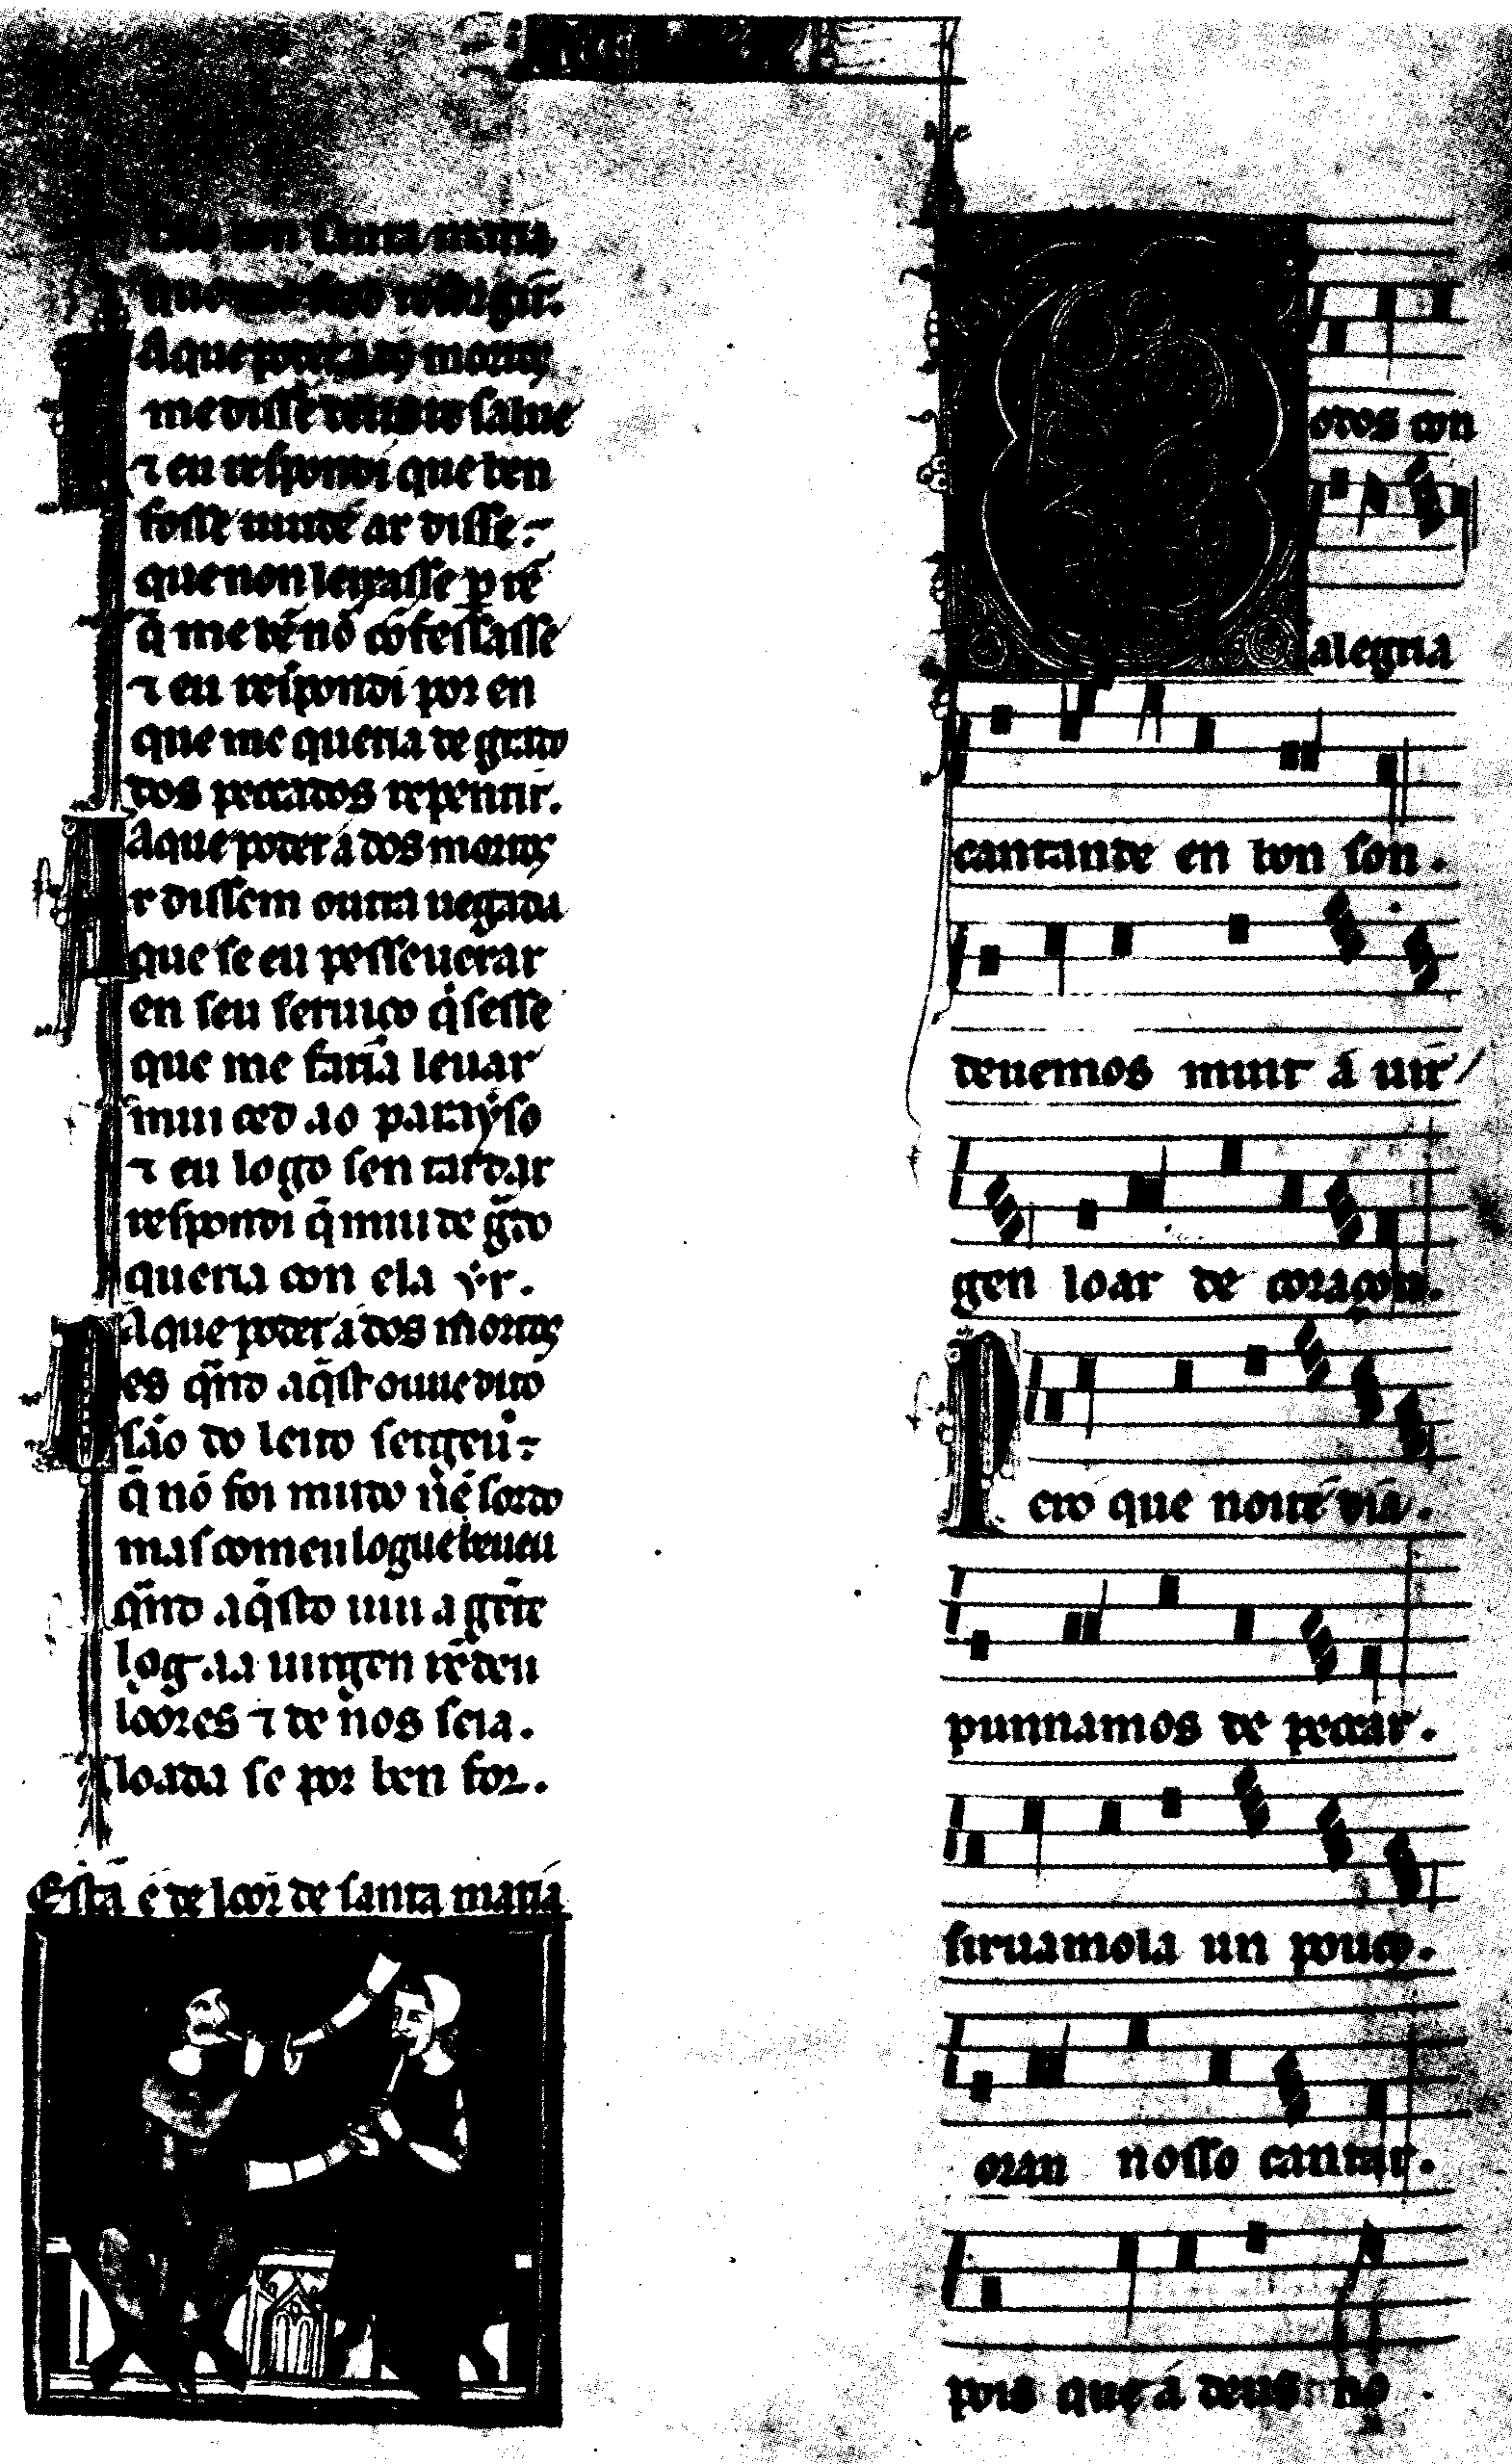 con santa maria
que
A que poder á dos mortos
me disse deus te salue
⁊ eu respondi que ben
fosse uĩnde ar disse
que non leixasse p̱ rẽ
q̃ me bẽ nõ cõfessasse
⁊ eu respondi por en
que me queria de grado
dos peccados repentir.
A que poder á dos mortos
Ar dissem outra uegada
que se eu persseuerar
en seu seruiço q̇ sesse
que me faria leuar
mui ced ao parayso
⁊ eu logo sen tardar
respondi q̃ mui de g̃do
queria con ela ẏr.
A que poder á dos mortos
Pes q̃ndo aq̃st ouue dito
são do leito sergeu
q̃ nõ foi mudo nẽ sordo
mas com eu logue beueu
q̃ndo aq̃sto uiu a gẽte
log aa uirgen rẽdeu
loores ⁊ de nos seia.
loada se por ben for.
Esta é de loor de santa maria
odos con
alegria
cantande en bon son.
deuemos muit á uir
gen loar de coraçon.
Pero que noite dia.
punnamos de peccar.
siruamola un pouco.
oran nosso cantar.
pois que á deus no